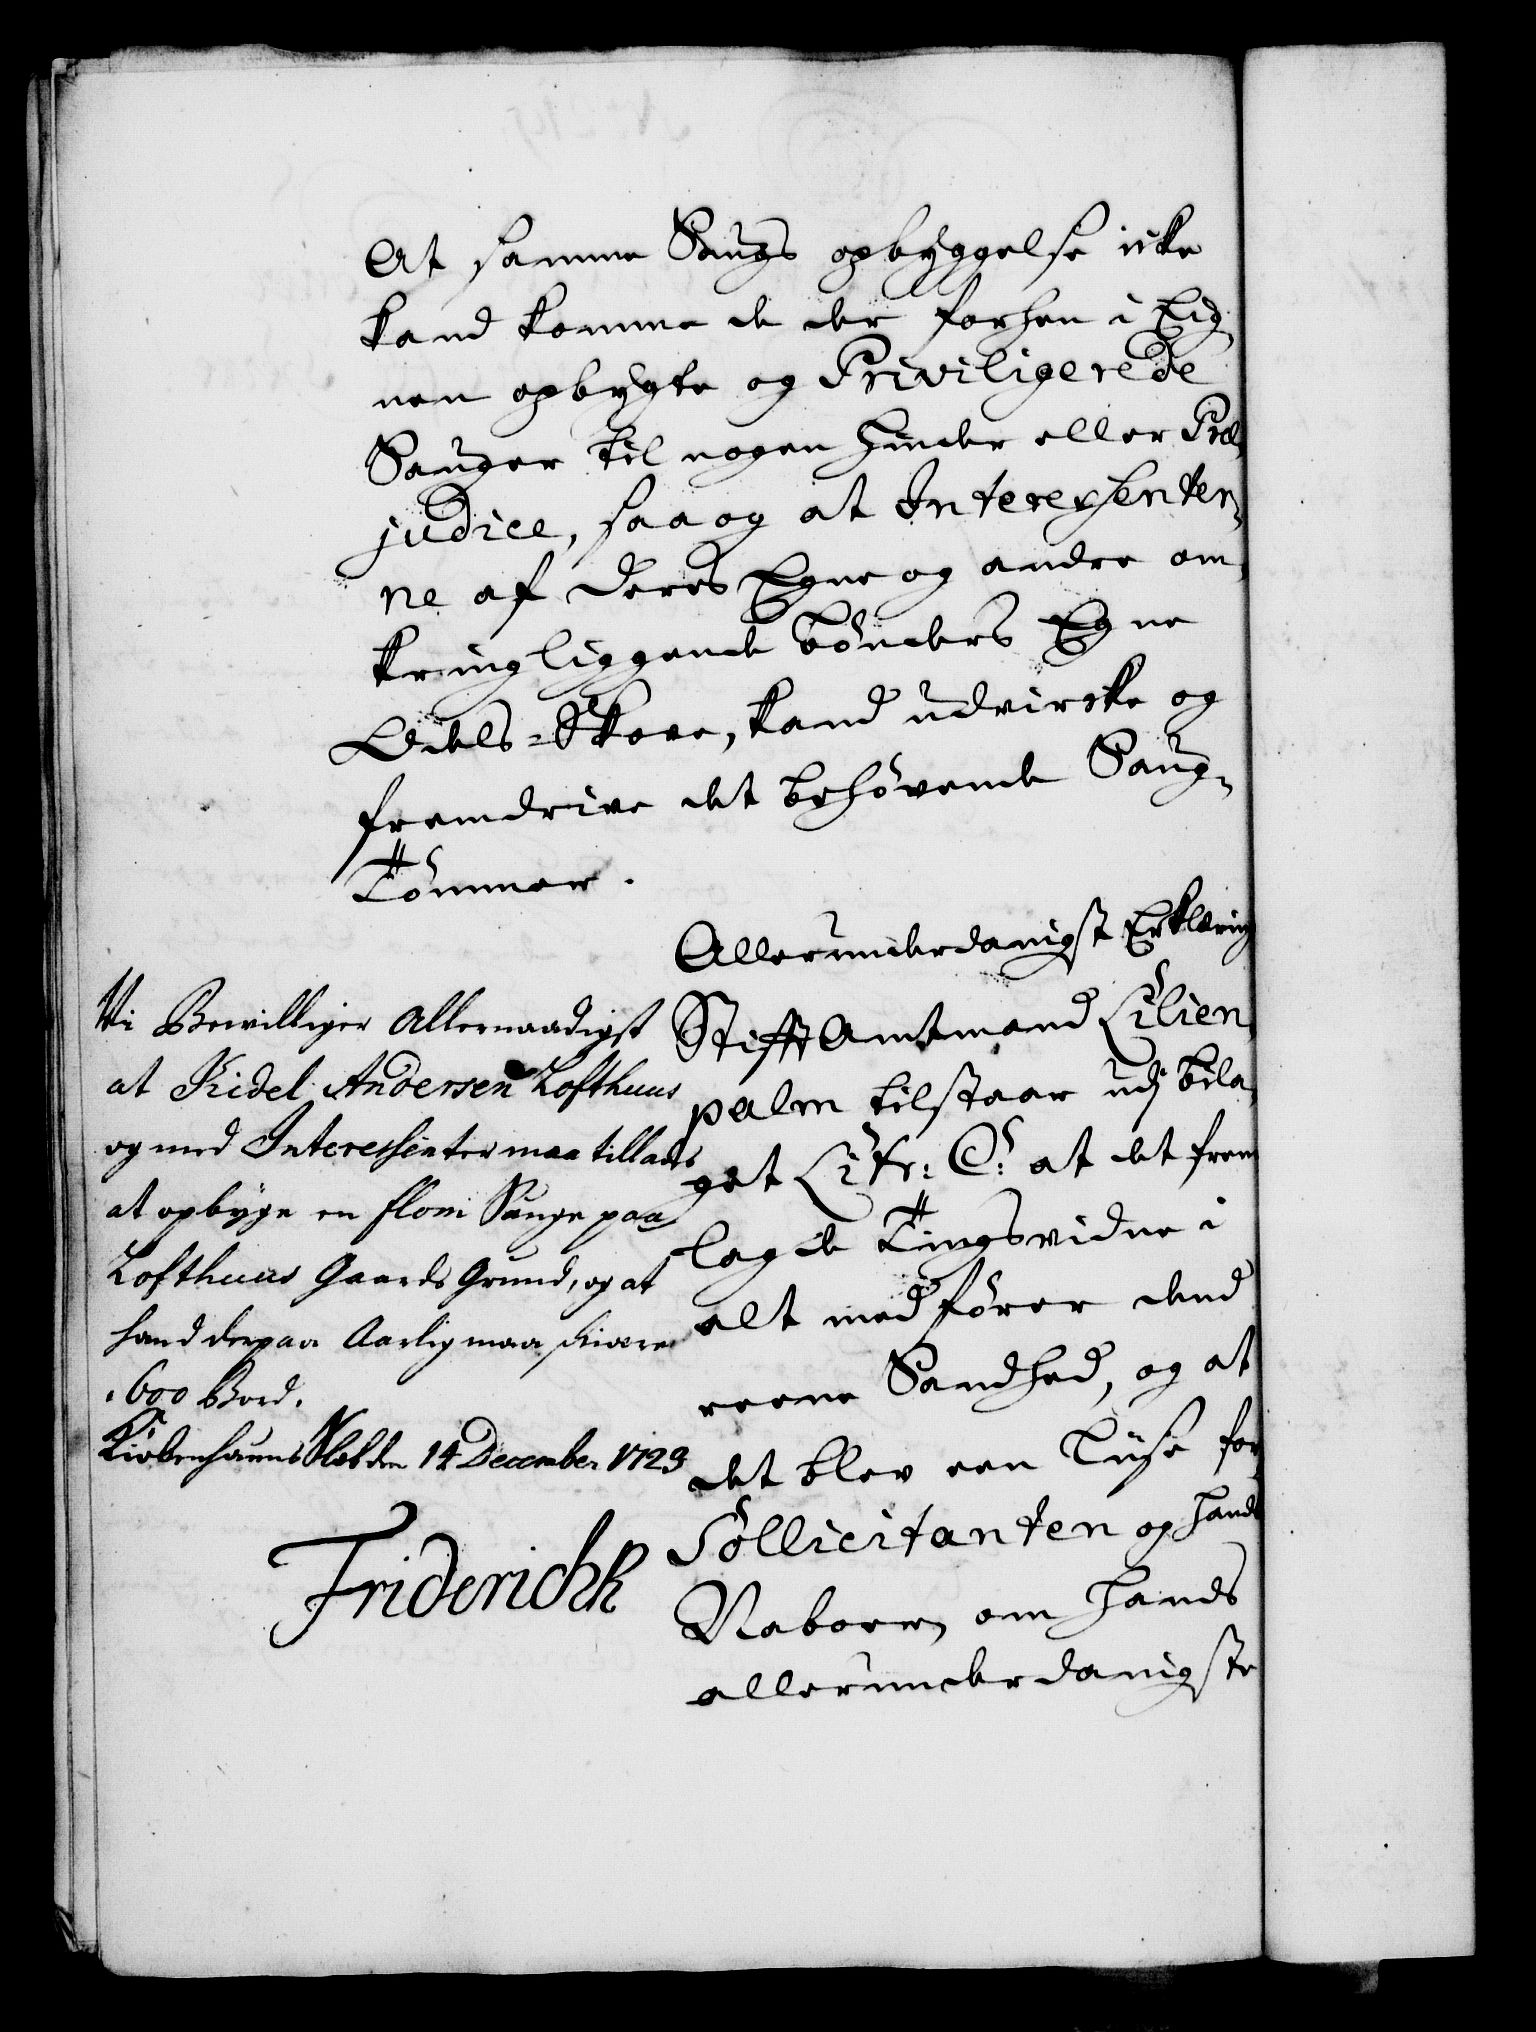 At samme Saugs opbyggelse icke
kand komme de der forhen i Eig,
nen opbygte og Priviligerede
Sauger til nogen hinder eller Præ,
judice, saa og at Interessenter,
ne af deres Egne og andre om,
kringliggende bönders Egne
Odels-Skove, kand udvircke og
fremdrive det behövende Saug-
Tömmer.
Allerunderdanigst Erklæring
StifftAmtmand Lilien,
palm tilstaar udj bila,
get Litr: C: at det frem
lagde Tingsvidne i
alt medförer dend
reene Sandhed, og at
det blev een Liise for
Sollicitanten og hands
Naboer, om hands
allerunderdanigste
Vi Bewilliger Allernaadigst
at Kidel Andersen Lofthuus
og med Interessenter maa tillades
at opbyge en flom Sauge paa
Lofthuus Gaards Grund, og at
hand derpaa Aarlig maa skiære
1600 Bord.
Kiöbenhaufns Slot den 14 December 1723
Friderich R